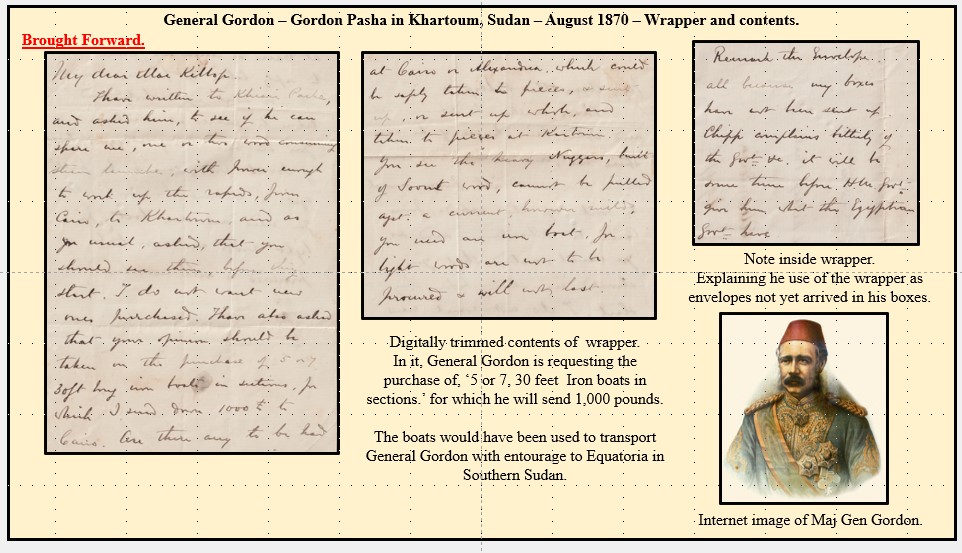 General Gordon – Gordon Pasha in Khartoum, Sudan – August 1870 – Wrapper and contents.
Brought Forward.
My dear Mac Killop
I have written to Khairi Pasha,
and asked him, to see if he can
spare me, one or two wood consuming
steam launches, with power enough
to work up the rapids, from
Cairo, to Khartoum and as
you usual, asked, that you
should see them, before they
start. I do not want new
ones purchased. I have also asked
that your opinion should be
taken on the purchase of 5 or 7
30ft long iron boats in sections, for
which I send down 1000£ to
Cairo. Are there any to be had
at Cairo or Alexandria which could
be safely taken to pieces, &
up, or sent up whole, and
taken to pieces at Kartoum
You see the heavy Nuggers, built
of Soont wood, cannot be pulled
agst. a current,
you need an iron boat, for
light woods are not to be
procured & will not last
Remark the Envelope.
all because my boxes
have not been sent up
Chipp complains bitterly of
the Govt &c. it will be
some time before H.M. Govt
give him, what the Egyptian
Govt have
Note inside wrapper.
Explaining he use of the wrapper as
envelopes not yet arrived in his boxes.
Digitally trimmed contents of wrapper.
In it, General Gordon is requesting the
purchase of, ‘5 or 7, 30 feet Iron boats in
sections.’ for which he will send 1,000 pounds.
The boats would have been used to transport
General Gordon with entourage to Equatoria in
Southern Sudan.
Internet image of Maj Gen Gordon.